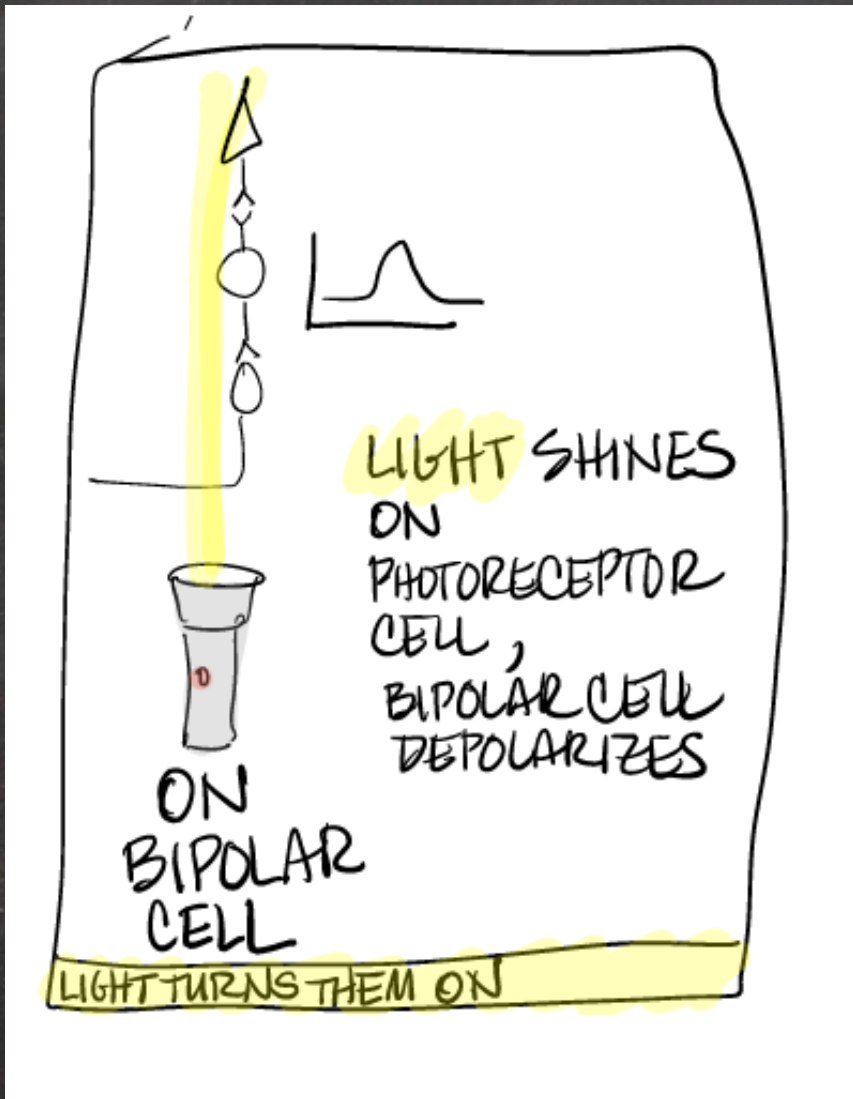 LIGHT SHINES
ON
PHOTORECEPTOR
CELL,
BIPOLAR CELL
DEPOLARIZES
ON
BIPOLAR
CELL
LIGHT TURNS THEM ON